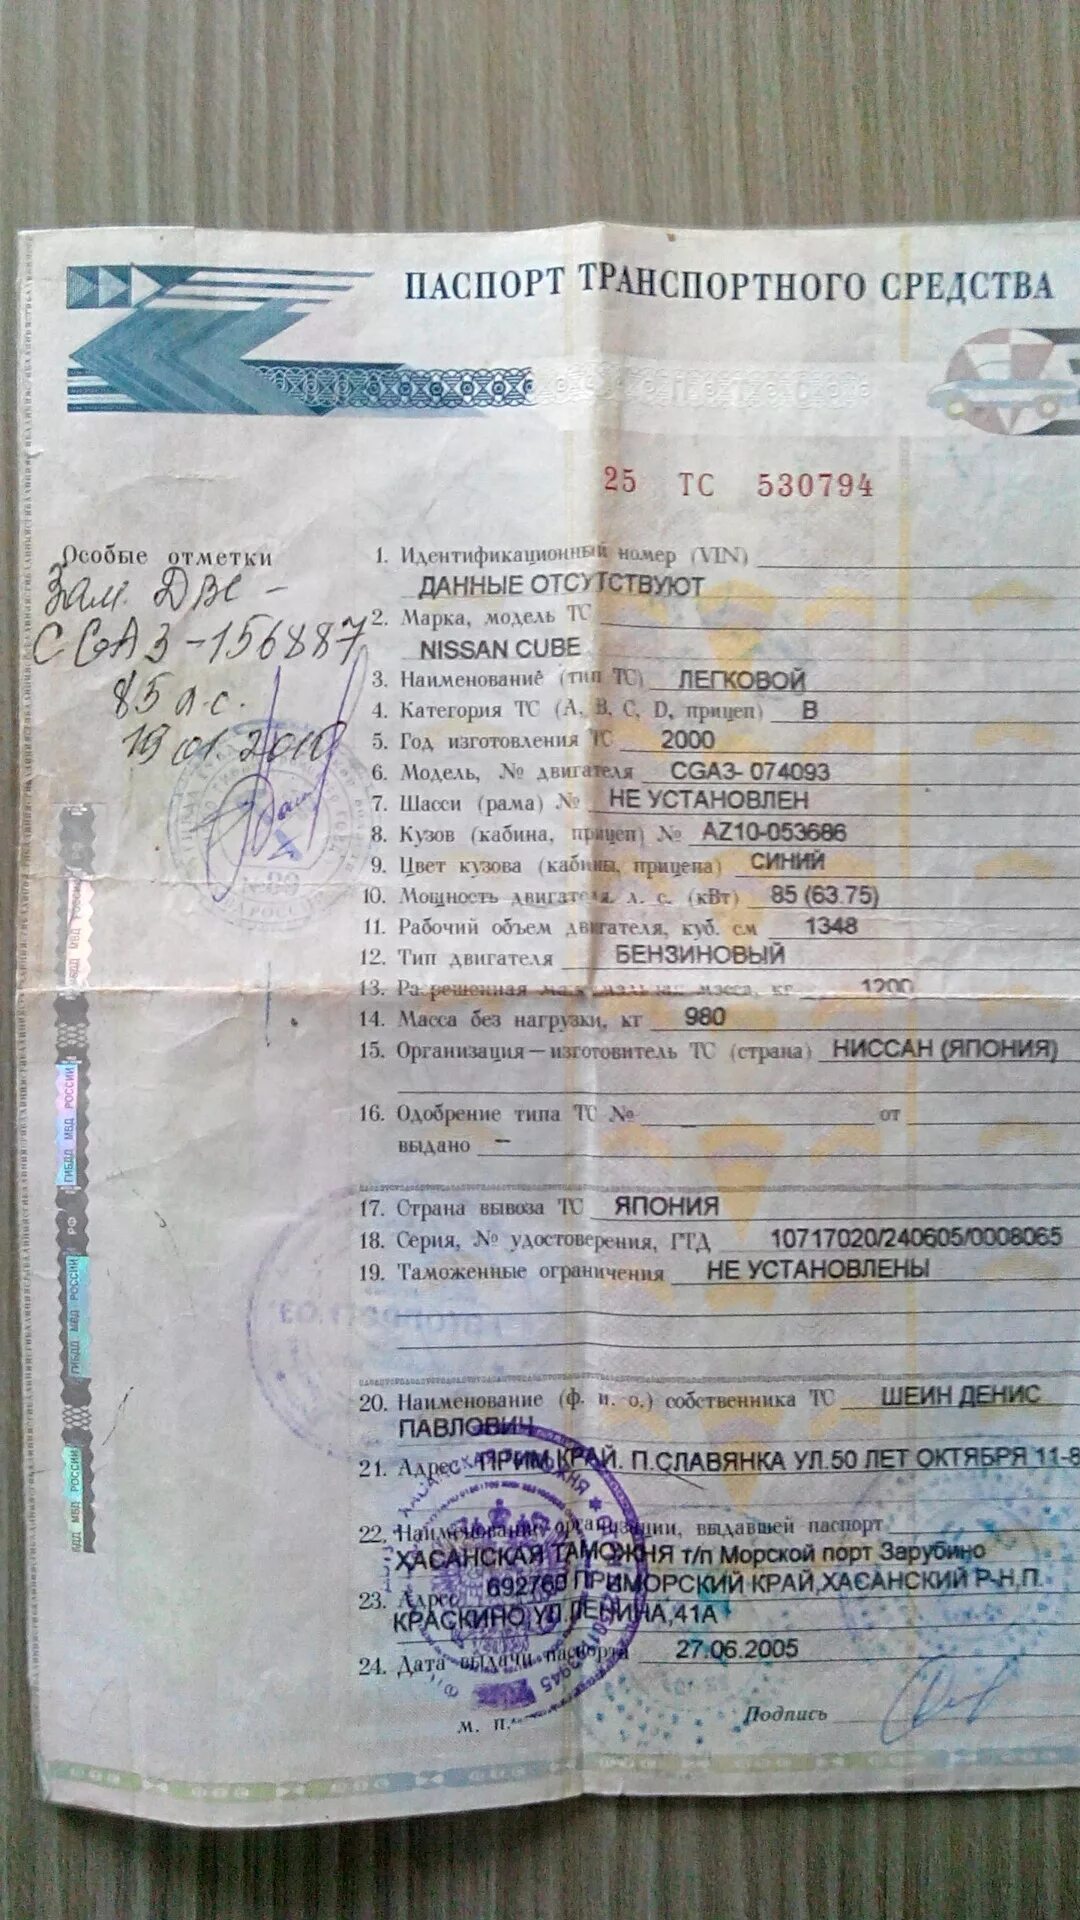 ПАСПОРТ ТРАНСПОРТНОГО СРЕДСТВА
25 ТС 530794
Особые отметки
Зам. ДВС -
CGA3-156887
85 л.с.
19 01. 2010
1. Идентификационный номер (VIN)
ДАННЫЕ ОТСУТСТВУЮТ
2. Марка, модель ТС
NISSAN CUBE
3. Наименование (тип ТС) ЛЕГКОВОЙ
4. Категория ТС (А, В, С, D, прицеп) В
5. Год изготовления ТС 2000
6. Модель, № двигателя CGA3- 074093
7. Шасси (рама) № НЕ УСТАНОВЛЕН
8. Кузов (кабина, прицеп) № AZ10-053686
9. Цвет кузова (кабины, прицепа) СИНИЙ
10. Мощность двигателя, л. с. (кВт) 85 (63.75)
11. Рабочий объем двигателя, куб. см 1348
12. Тип двигателя БЕНЗИНОВЫЙ
13. Разрешенная максимальная масса, кг 1200
14. Масса без нагрузки, кг 980
15. Организация—изготовитель ТС (страна) НИССАН (ЯПОНИЯ)
16. Одобрение типа ТС № от
выдано –
17. Страна вывоза ТС ЯПОНИЯ
18. Серия, № удостоверения, ГТД 10717020/240605/0008065
19. Таможенные ограничения НЕ УСТАНОВЛЕНЫ
20. Наименование (ф. и. о.) собственника ТС ШЕИН ДЕНИС
ПАВЛОВИЧ
21. Адрес ПРИМ.КРАЙ. П.СЛАВЯНКА УЛ.50 ЛЕТ ОКТЯБРЯ 11-8
22. Наименование организации, выдавшей паспорт
ХАСАНСКАЯ ТАМОЖНЯ т/п Морской порт Зарубино
23. Адрес 692760 ПРИМОРСКИЙ КРАЙ,ХАСАНСКИЙ Р-Н,П.
КРАСКИНО,УЛ.ЛЕНИНА,41А
24. Дата выдачи паспорта 27.06.2005
М. П.
Подпись
ГИБДД МВД РОССИИ